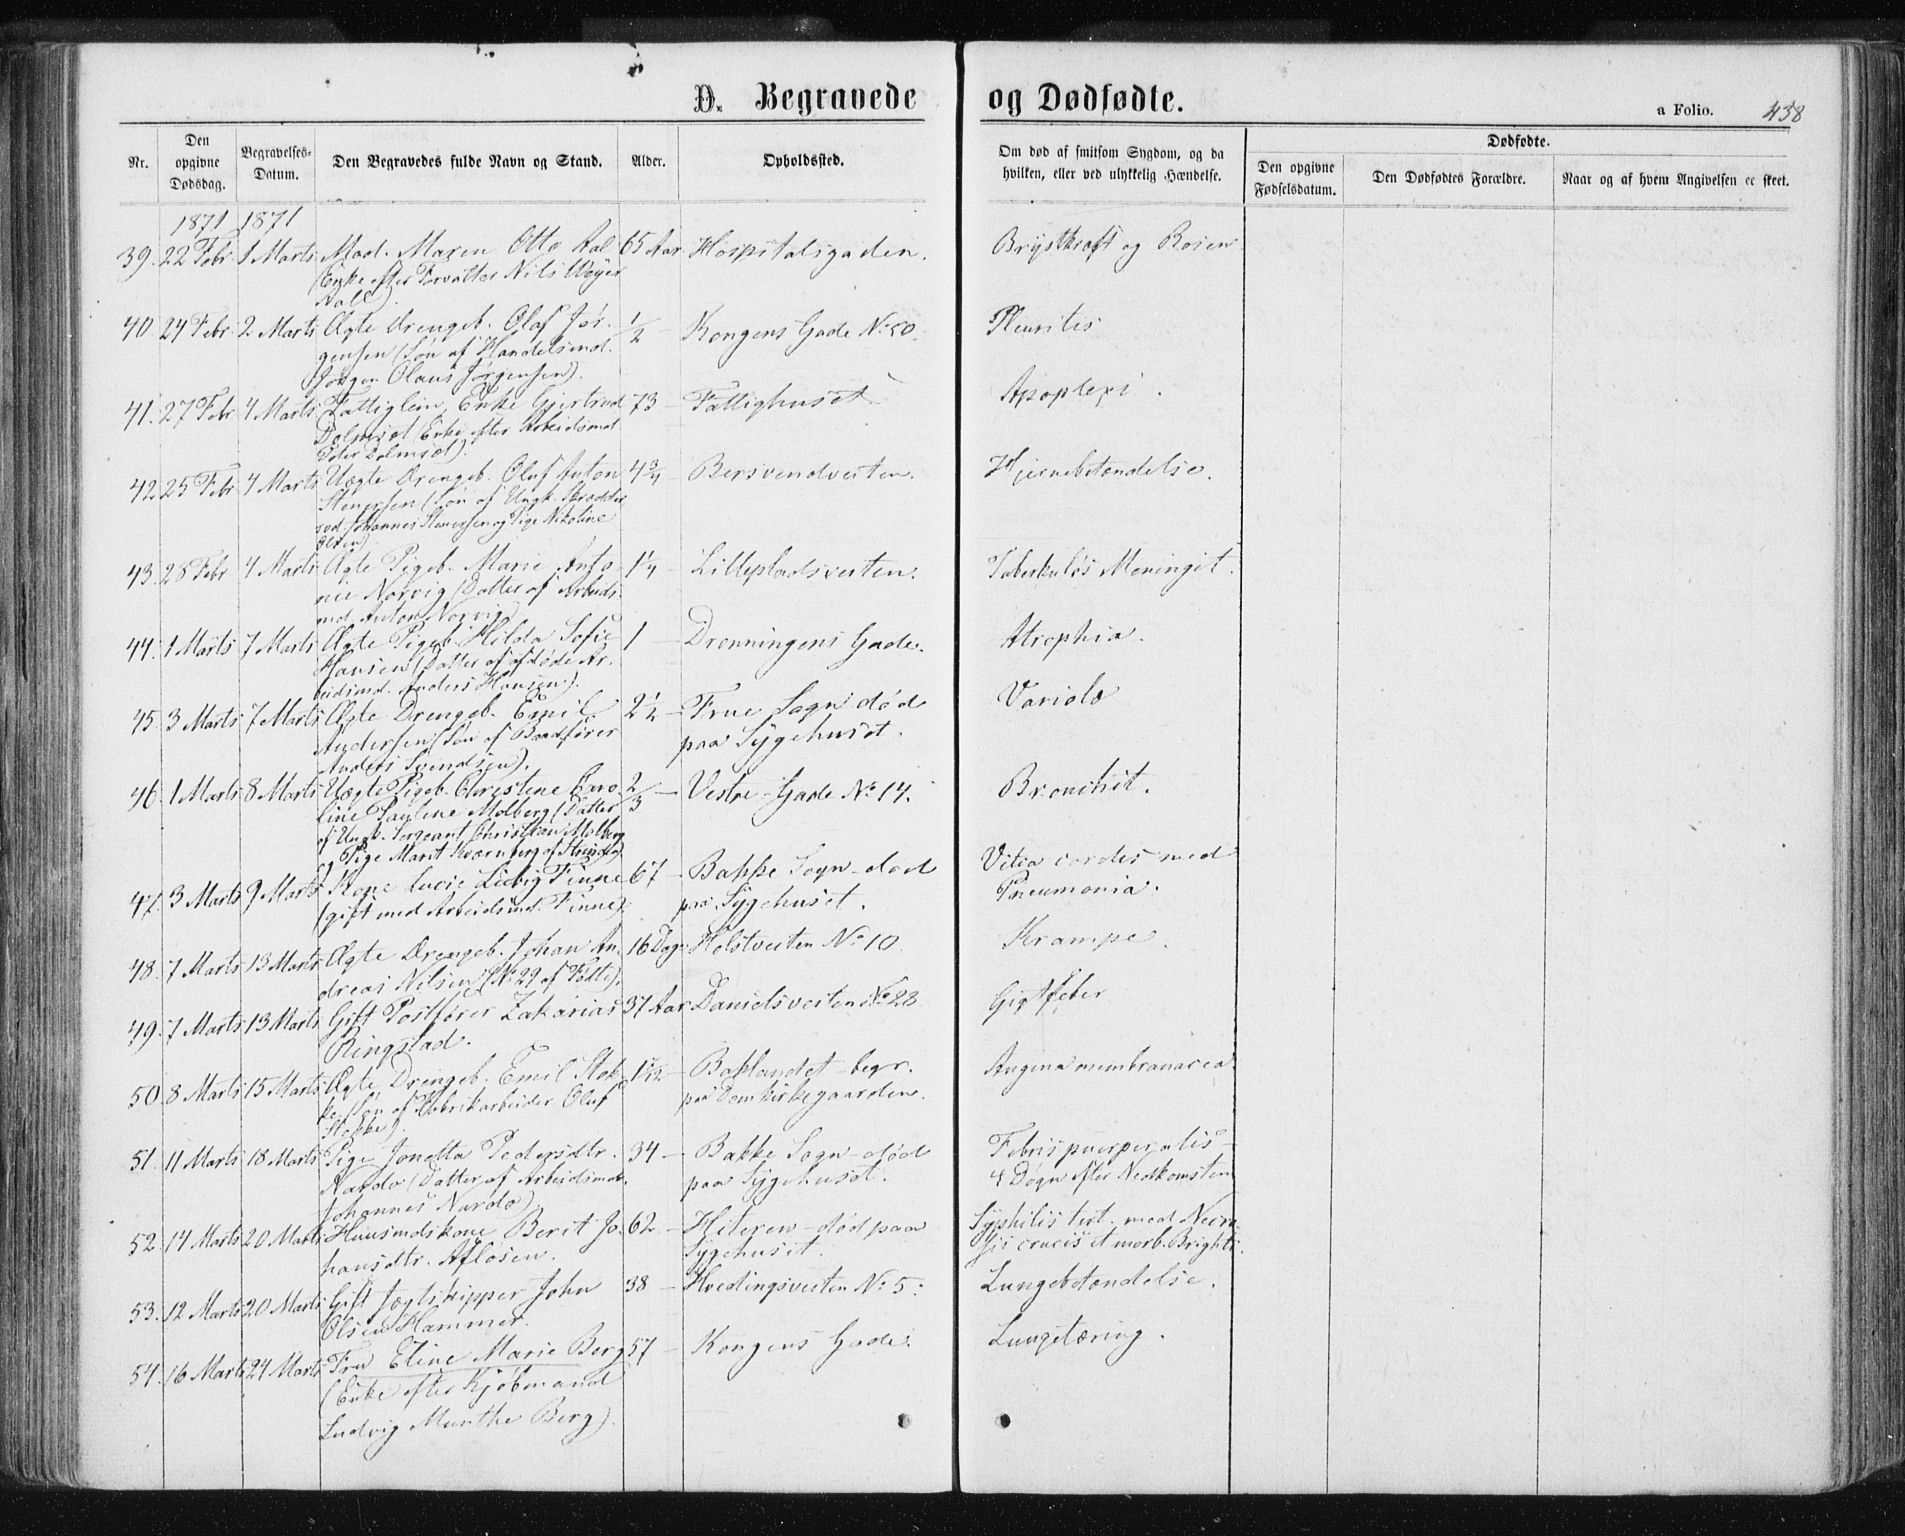 D. Begravede og Dødfødte.
a Folio. 438
Nr.
Den opgivne Dødsdag.
Begravelses-Datum.
Den Begravedes fulde Navn og Stand.
Alder.
Opholdsted.
Om død af smitsom Sygdom, og da hvilken, eller ved ulykkelig Hændelse.
Dødfødte.
Den opgivne Fødselsdatum.
Den Dødfødtes Forældre.
Naar og af hvem Angivelsen er skeet.
1871 1871
39. 22 Febr 1 Marts Mad. Maren Otto Aal 65 Aar Hospitalsgaden. Brystkraft og Rosen
(Enke efter Forvalter Nils Weyer
Aall).
40. 24 Febr. 2 Marts Ægte Drengeb. Olaf Jør- 1/2 — Kongens Gade No 50. Pleurites
gensen (Søn af Handelsmd.
Jørgen Olaus Jørgensen).
41. 27 Febr 4 Marts Fattiglem, Enke Gjertrud 73 — Fattighuset Apoplexi.
Dolmset (Enke efter Arbeidsmd
Peder Dolmset).
42. 25 Febr 4 Marts Uægte Drengeb. Oluf Anton 4 3/4 — Bersvendveiten. Hjernebetændelse.
Stenersen (Søn af Ungk. Skrædder
svd. Johannes Stenersen og Pige Nikoline
Olsen).
43. 28 Febr 4 Marts Ægte Pigeb. Marie Anto- 1 1/4 — Lillepladsveiten. Tuberkuløs Meningit.
nie Norvig (Datter af Arbeids-
md. Anton Norvig)
44. 1 Marts 7 Marts Ægte Pigeb. Hilda Sofie 1 — Dronningens Gade. Atrophia.
Hansen (Datter af afdøde Ar-
beidsmd. Anders Hansen).
45. 3 Marts 7 Marts Ægte Drengeb. Emil 2 1/2 — Frue Sogn død Variola
Andersen (Søn af Baadfører paa Sygehuset.
Anders Svendsen).
46. 1 Marts 8 Marts Uægte Pigeb. Christine Caro- 2/3 — Vestre Gade No 14. Bronchit.
line Pauline Molberg (Datter
af Ungk. Sergeant Christian Molberg
og Pige Marit Kværnberg af Strinden)
47. 3 Marts 9 Marts Kone Lucie Liebig Finne 67 — Bakke Sogn - død Vitia cordis med
(gift med Arbeidsmd. Finne). paa Sygehuset. Pneumonia.
48. 7 Marts 13 Marts Ægte Drengeb. Johan An- 16 Dag. Holstveiten No 10. Krampe.
dreas Nilsen (No 29 af Fødte).
49. 7 Marts 13 Marts Gift Postfører Zakarias 37 Aar Danielsveiten No 23 Gigtfeber
Ringstad.
50. 8 Marts 15 Marts Ægte Drengeb. Emil Stok- 1 5/12 — Baklandet - begr. Angina membranacea.
ke (Søn af Fabrikarbeider Oluf paa Domkirkegaarden.
Stokke).
51. 11 Marts 18 Marts Pige Jonetta Pedersdtr. 34 — Bakke Sogn - død Febris puerperalis -
Nardo (Datter af Arbeidsmd. paa Sygehuset. 4 Døgn efter Nedkomsten
Johannes Nardo)
52. 14 Marts 20 Marts Husmdskone Berit Jo- 62 — Hiteren - død paa Syphilis tert. med Necro-
hansdtr. Aflosen. Sygehuset. sis crucis et morb. Brighti.
53. 12 Marts 20 Marts Gift Jægtskipper John 38 — Hvedingsveiten No 5. Lungebetændelse.
Olsen Hammer.
54. 16 Marts 24 Marts Fru Eline Marie Berg 57 — Kongens Gade. Lungetæring.
(Enke efter Kjøbmand
Ludvig Munthe Berg).